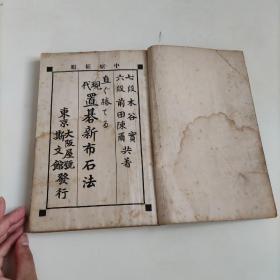 七段 木谷實
六段 前田陳爾 共著
直ぐ勝てる
現代 置碁新布石法
東京 大阪屋號
斯文館 發行